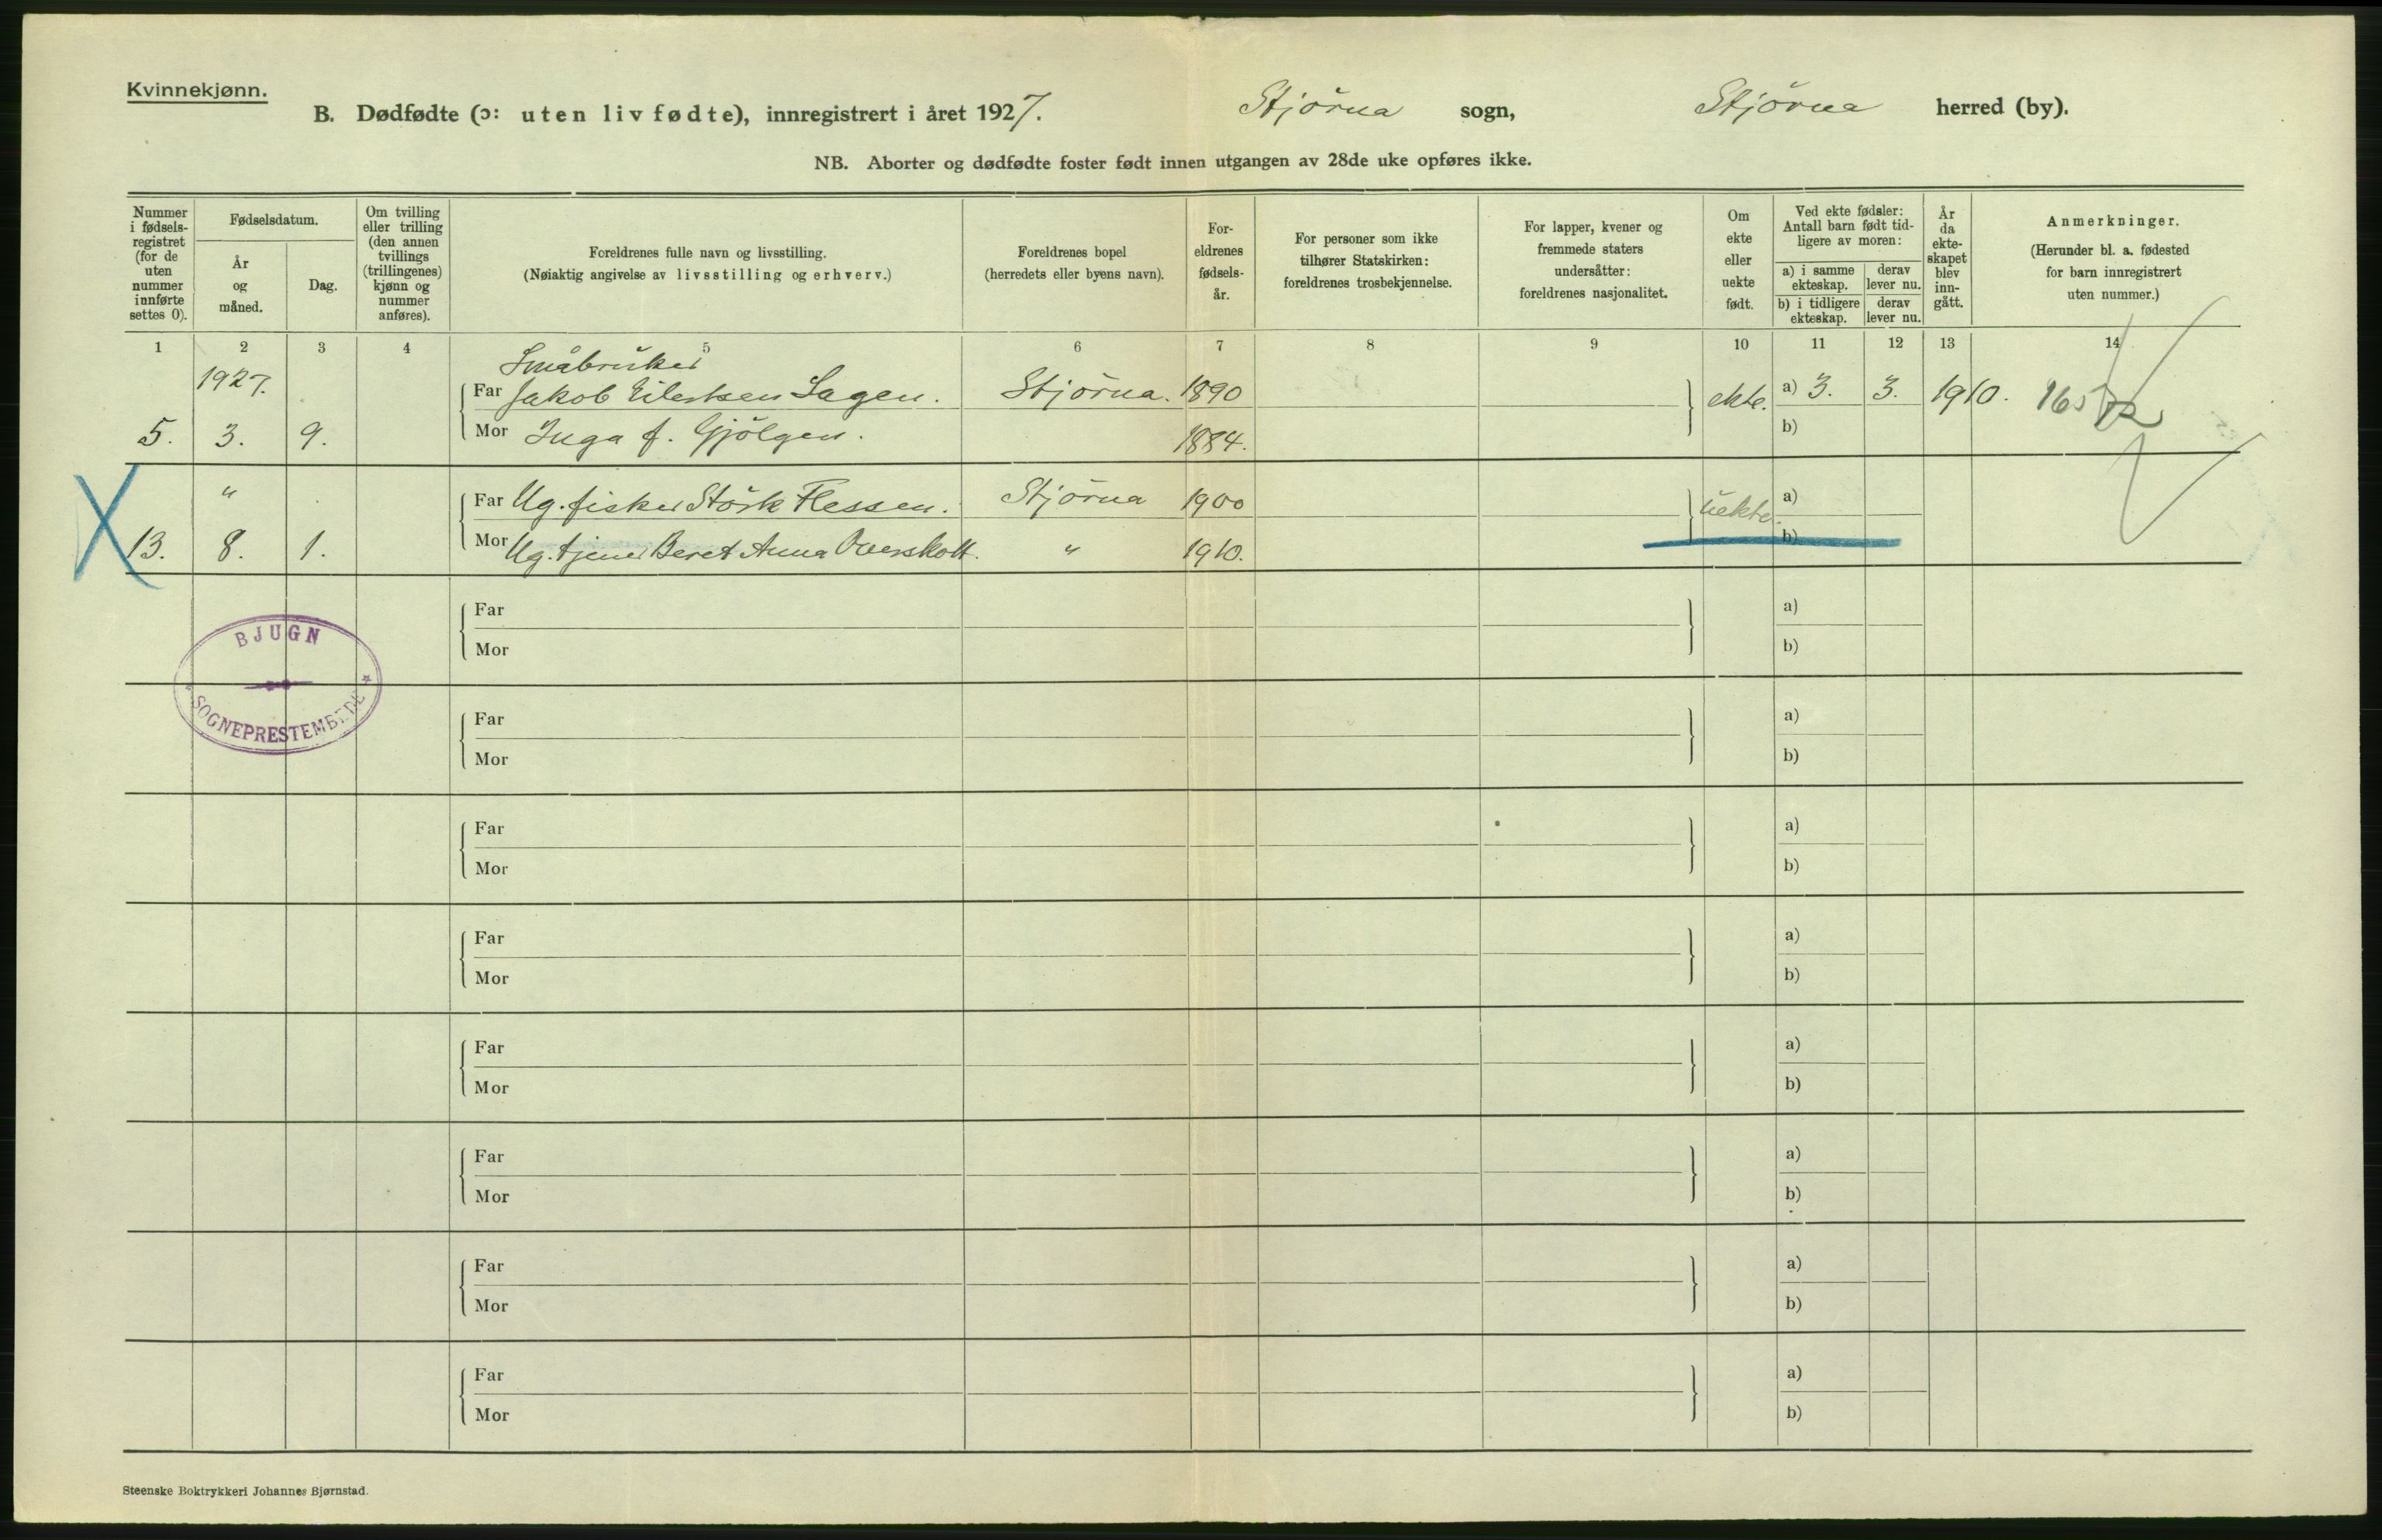 Kvinnekjønn.
B. Dødfødte (ɔ: uten liv fødte), innregistrert i året 1927. Stjørna sogn, Stjørna herred (by).
NB. Aborter og dødfødte foster født innen utgangen av 28de uke opføres ikke.
Nummer i fødselsregistret (for de uten nummer innførte settes 0).
Fødselsdatum.
År og måned.
Dag.
Om tvilling eller trilling (den annen tvillings (trillingenes) kjønn og nummer anføres).
Foreldrenes fulle navn og livsstilling.
(Nøiaktig angivelse av livsstilling og erhverv.)
Foreldrenes bopel
(herredets eller byens navn).
Foreldrenes fødselsår.
For personer som ikke tilhører Statskirken: foreldrenes trosbekjennelse.
For lapper, kvener og fremmede staters undersåtter: foreldrenes nasjonalitet.
Om ekte eller uekte født.
Ved ekte fødsler: Antall barn født tidligere av moren:
a) i samme ekteskap. derav lever nu.
b) i tidligere ekteskap. derav lever nu.
År da ekteskapet blev inngått.
Anmerkninger.
(Herunder bl. a. fødested for barn innregistrert uten nummer.)
1 2 3 4 5 6 7 8 9 10 11 12 13 14
Småbruker
1927. Far Jakob Eilertsen Sagen. Stjørna. 1890 ekte. a) 3. 3. 1910.
5. 3. 9. Mor Inga f. Gjølgen. 1884. b)
" Far Ug. fisker Störk Flessen. Stjørna 1900 uekte. a)
13. 8. 1. Mor Ug. tjener Beret Anna Overskott. " 1910. b)
Far a)
Mor b)
BJUGN
SOGNEPRESTEMBEDE
Far a)
Mor b)
Far a)
Mor b)
Far a)
Mor b)
Far a)
Mor b)
Far a)
Mor b)
Far a)
Mor b)
Far a)
Mor b)
Steenske Boktrykkeri Johannes Bjørnstad.